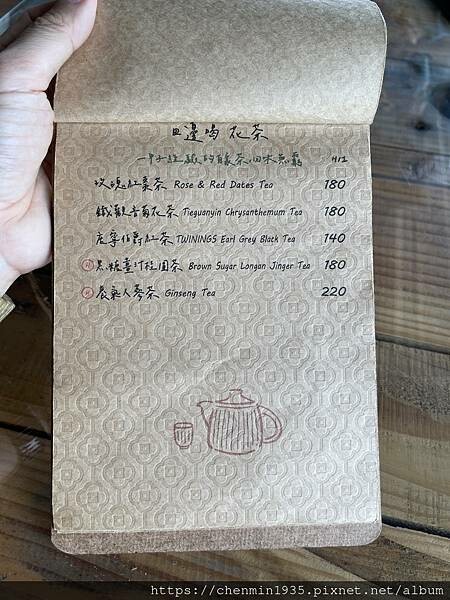 邊喝花茶
H/I
玫瑰紅棗茶 Rose & Red Dates Tea 180
鐵觀音菊花茶 Tieguanyin Chrysanthemum Tea 180
唐寧伯爵紅茶 TWININGS Earl Grey Black Tea 140
黑糖薑汁桂圓茶 Brown Sugar Longan Jinger Tea 180
人蔘茶 Ginseng Tea 220
https://chenmin1935.pixnet.net/album